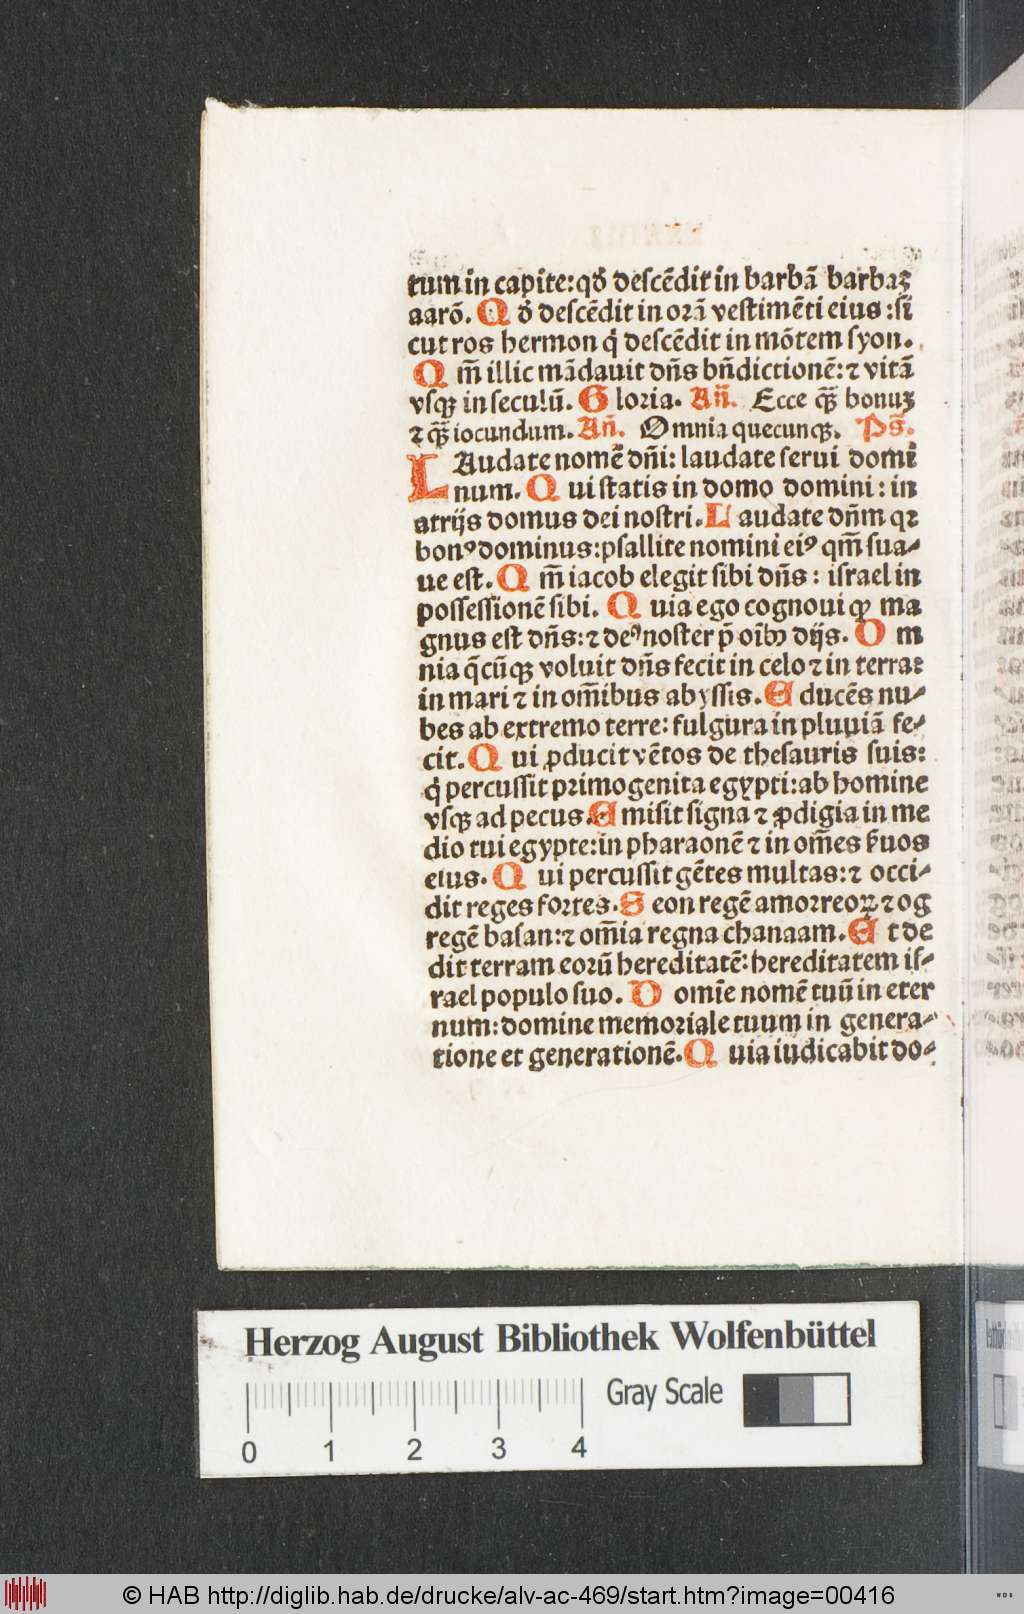 tum in capite: qđ descēdit in barbā barbaꝫ
aarō. Qđ descēdit in orā vestimēti eius: si
cut ros hermon q̇ descēdit in mōtem syon.
Qm̄ illic mādauit dn̄s bn̄dictionē: ⁊ vitā
vsqꝫ in seculū. Gloria. An̄. Ecce q̄ꝫ bonuꝫ
⁊ q̄ꝫ iocundum. An̄. Omnia quecunqꝫ. Ps̄.
LAudate nomē dn̄i: laudate serui domi
num. Qui statis in domo domini: in
atrijs domus dei nostri. Laudate dn̄m qꝛ
bonꝰ dominus: psallite nomini eiꝰ qm̄ sua⸗
ue est. Qm̄ iacob elegit sibi dn̄s: israel in
possessionē sibi. Quia ego cognoui qꝙ ma
gnus est dn̄s: ⁊ deꝰ noster p̄ oībꝫ dijs. Om
nia q̄cūqꝫ voluit dn̄s fecit in celo ⁊ in terra:
in mari ⁊ in om̄ibus abyssis. Educēs nu⸗
bes ab extremo terre: fulgura in pluuiā fe⸗
cit. Qui ꝓducit vētos de thesauris suis:
q̇ percussit primogenita egypti: ab homine
vsqꝫ ad pecus. Emisit signa ⁊ ꝓdigia in me
dio tui egypte: in pharaonē ⁊ in om̄es ẜuos
eius. Qui percussit gētes multas: ⁊ occi⸗
dit reges fortes. Seon regē amorreoꝝ ⁊ og
regē basan: ⁊ om̄ia regna chanaam. Et de
dit terram eorū hereditatē: hereditatem is⸗
rael populo suo. Domīe nomē tuū in eter
num: domine memoriale tuum in genera⸗
tione et generationē. Quia iudicabit do⸗
Herzog August Bibliothek Wolfenbüttel
Gray Scale
0 1 2 3 4
© HAB http://diglib.hab.de/drucke/alv-ac-469/start.htm?image=00416